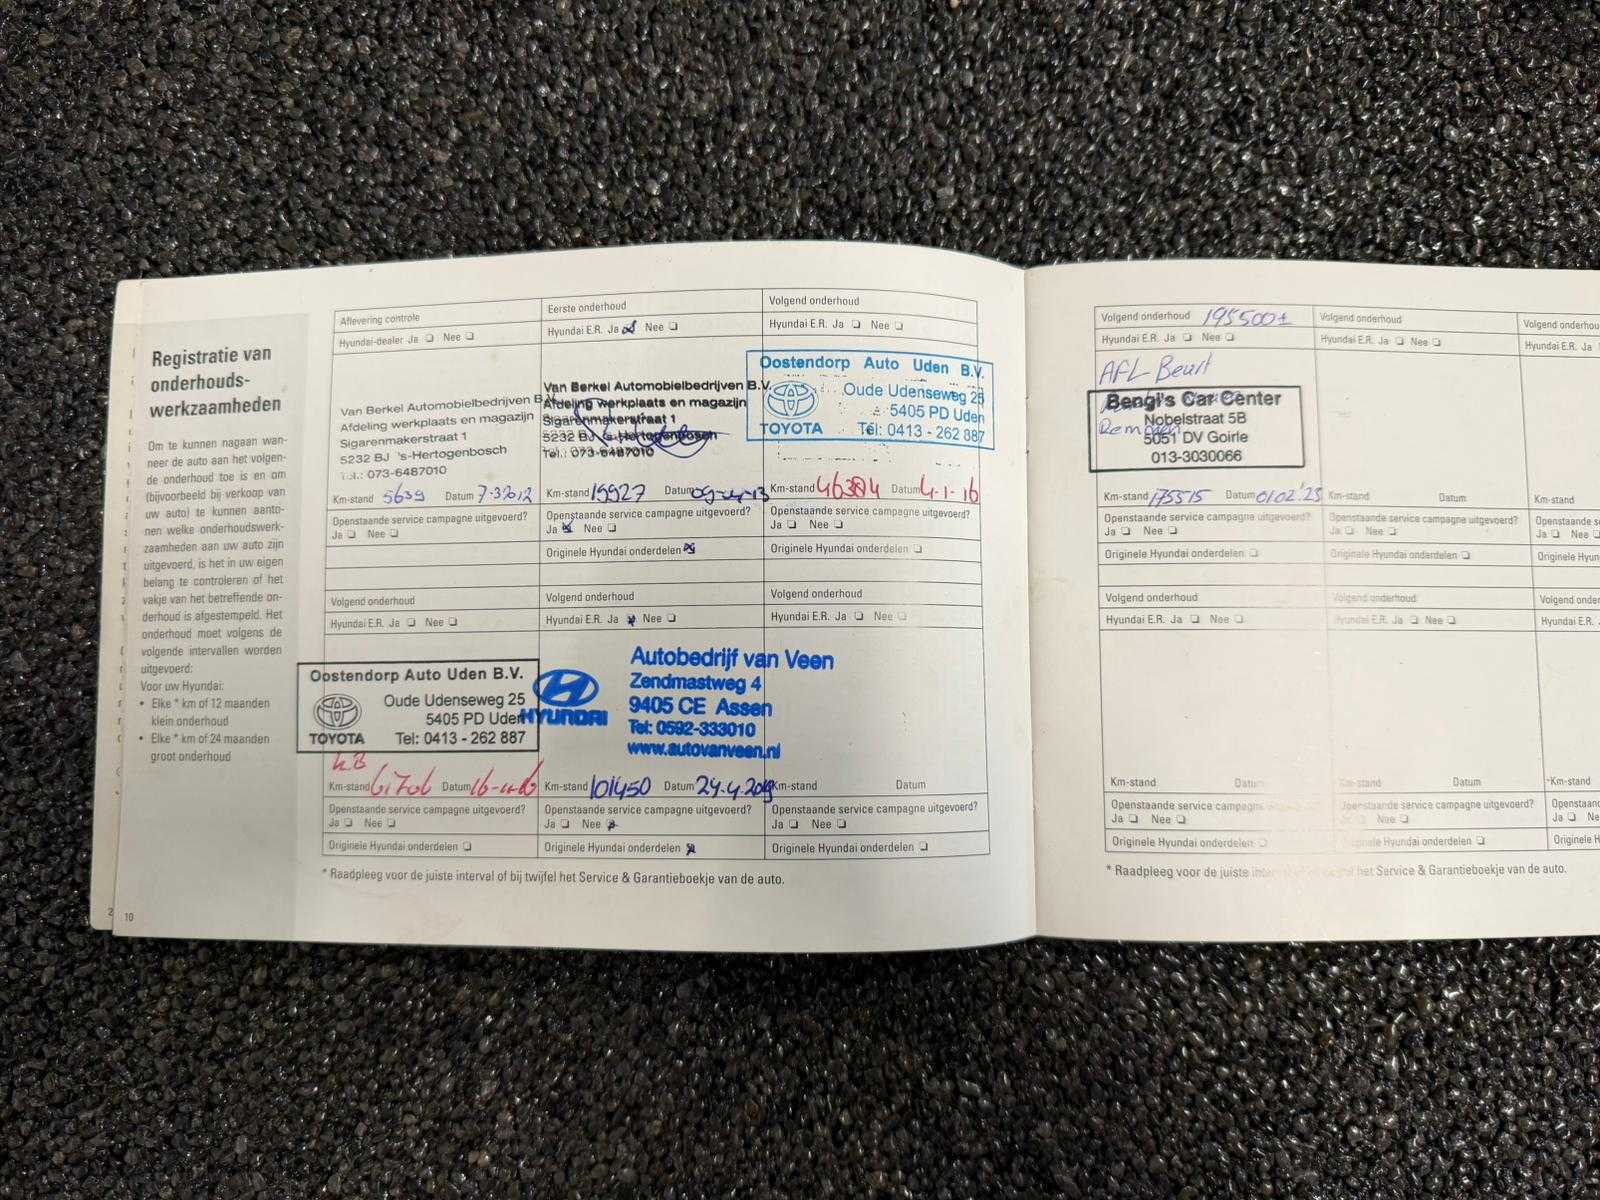 Registratie van
onderhouds-
werkzaamheden
Om te kunnen nagaan wan-
neer de auto aan het volgen-
de onderhoud toe is en om
(bijvoorbeeld bij verkoop van
uw auto) te kunnen aanto-
nen welke onderhoudswerk-
zaamheden aan uw auto zijn
uitgevoerd, is het in uw eigen
belang te controleren of het
vakje van het betreffende on-
derhoud is afgestempeld. Het
onderhoud moet volgens de
volgende intervallen worden
uitgevoerd:
Voor uw Hyundai:
• Elke * km of 12 maanden
klein onderhoud
• Elke * km of 24 maanden
groot onderhoud
10
Aflevering controle
Hyundai-dealer Ja ❏ Nee ❏
Van Berkel Automobielbedrijven B.V.
Afdeling werkplaats en magazijn
Sigarenmakerstraat 1
5232 BJ 's-Hertogenbosch
Tel.: 073-6487010
Km-stand 5639 Datum 7-3-2012
Openstaande service campagne uitgevoerd?
Ja ❏ Nee ❏
Eerste onderhoud
Hyundai E.R. Ja ❏ Nee ❏
Van Berkel Automobielbedrijven B.V.
Afdeling werkplaats en magazijn
Sigarenmakerstraat 1
5232 BJ 's-Hertogenbosch
Tel.: 073-6487010
Km-stand 15927 Datum
Openstaande service campagne uitgevoerd?
Ja ❏ Nee ❏
Originele Hyundai onderdelen
Volgend onderhoud
Hyundai E.R. Ja ❏ Nee ❏
Oostendorp Auto Uden B.V.
Oude Udenseweg 25
5405 PD Uden
TOYOTA
Tel: 0413 - 262 887
Km-stand 46384 Datum 4-1-16
Openstaande service campagne uitgevoerd?
Ja ❏ Nee ❏
Originele Hyundai onderdelen ❏
Volgend onderhoud
Hyundai E.R. Ja ❏ Nee ❏
Oostendorp Auto Uden B.V.
Oude Udenseweg 25
5405 PD Uden
TOYOTA
Tel: 0413 - 262 887
Km-stand 61706 Datum
Openstaande service campagne uitgevoerd?
Ja ❏ Nee ❏
Originele Hyundai onderdelen ❏
Volgend onderhoud
Hyundai E.R. Ja Nee ❏
HYUNDAI
Autobedrijf van Veen
Zendmastweg 4
9405 CE Assen
Tel: 0592-333010
www.autovanveen.nl
Km-stand 101450 Datum 24.4.2019
Openstaande service campagne uitgevoerd?
Ja ❏ Nee
Originele Hyundai onderdelen
Volgend onderhoud
Hyundai E.R. Ja ❏ Nee ❏
Km-stand Datum
Openstaande service campagne uitgevoerd?
Ja ❏ Nee ❏
Originele Hyundai onderdelen ❏
* Raadpleeg voor de juiste interval of bij twijfel het Service & Garantieboekje van de auto.
Volgend onderhoud 195500±
Hyundai E.R. Ja ❏ Nee ❏
AFL-Beurt
Bengi's Car Center
Nobelstraat 5B
5051 DV Goirle
013-3030066
Remmen
Km-stand 175515 Datum 01.02'23
Openstaande service campagne uitgevoerd?
Ja ❏ Nee ❏
Originele Hyundai onderdelen ❏
Volgend onderhoud
Hyundai E.R. Ja ❏ Nee ❏
Km-stand Datum
Openstaande service campagne uitgevoerd?
Ja ❏ Nee ❏
Originele Hyundai onderdelen ❏
Volgend onderhou
Hyundai E.R. Ja
Km-stand
Openstaande s
Ja ❏ Nee ❏
Originele Hyun
Volgend onderhoud
Hyundai E.R. Ja ❏ Nee ❏
Km-stand Datum
Openstaande service campagne
Ja ❏ Nee ❏
Originele Hyundai onderdelen ❏
Volgend onderhoud
Hyundai E.R. Ja ❏ Nee ❏
Km-stand Datum
Openstaande service campagne uitgevoerd?
Ja ❏ Nee ❏
Originele Hyundai onderdelen ❏
Volgend onde
Hyundai E.R.
Km-stand
Openstaande
Ja ❏ Ne
Originele H
* Raadpleeg voor de juiste interval of bij twijfel het Service & Garantieboekje van de auto.